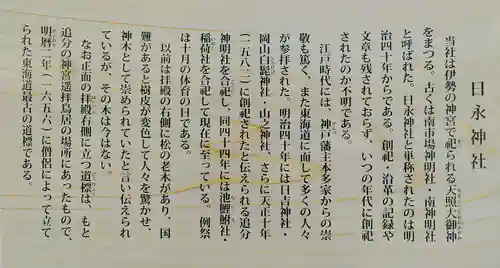 日永神社
当社は伊勢の神宮で祀られる天照大御神
をまつる。古くは南市場神明社・南神明社
と呼ばれた。日永神社と単称されたのは明
治四十年からである。創祀・沿革の記録や
文章も残されておらず、いつの年代に創祀
されたのか不明である。
江戸時代には、神戸藩主本多家からの崇
敬も篤く、また東海道に面して多くの人々
が参拝された。明治四十年には日吉神社・
岡山白髭神社・山之神社、さらに天正十年
(一五八二)に創祀されたと伝えられる追分
神明社を合祀し、同四十四年には池鯉鮒社・
稲荷社を合祀して現在に至っている。 例祭
は十月の体育の日である。
以前は拝殿の右側に松の老木があり、国
難があると樹皮が変色して人々を驚かせ、
神木として崇められていたと言い伝えられ
ているが、その木は今はない。
なお正面の拝殿右側に立つ道標は、もと
追分の神宮遥拝鳥居の場所にあったもので、
明暦二年(一六五六)に僧侶によって立て
られた東海道最古の道標である。